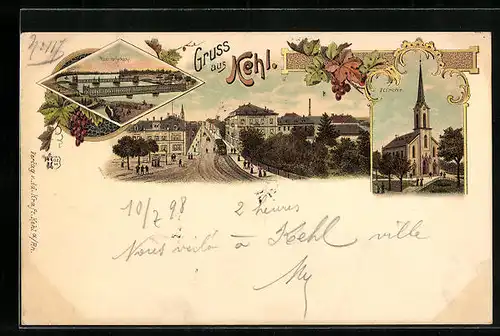 Gruss
aus
Kehl.
Kirche.
10/7 98 2 heures
Nous voilà à Kehl ville
My